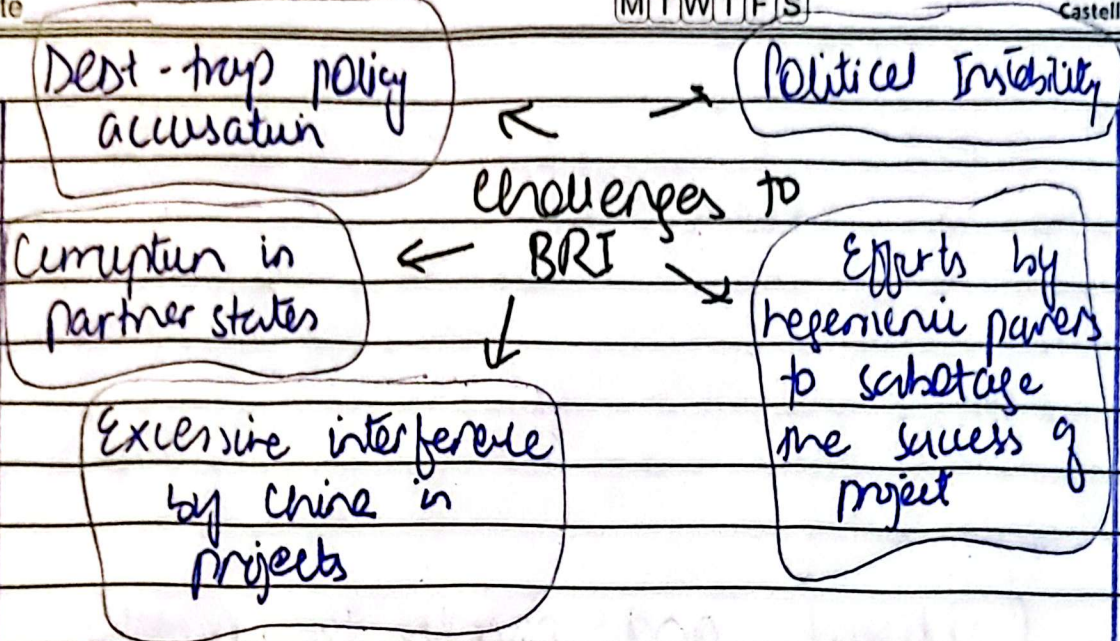 te
M T W T F S
Castell
Debt-trap policy
accusation
Political Instability
Challenges to
BRI
Corruption in
partner states
Efforts by
hegemonic powers
to sabotage
the success of
project
Excessive interference
by China in
projects